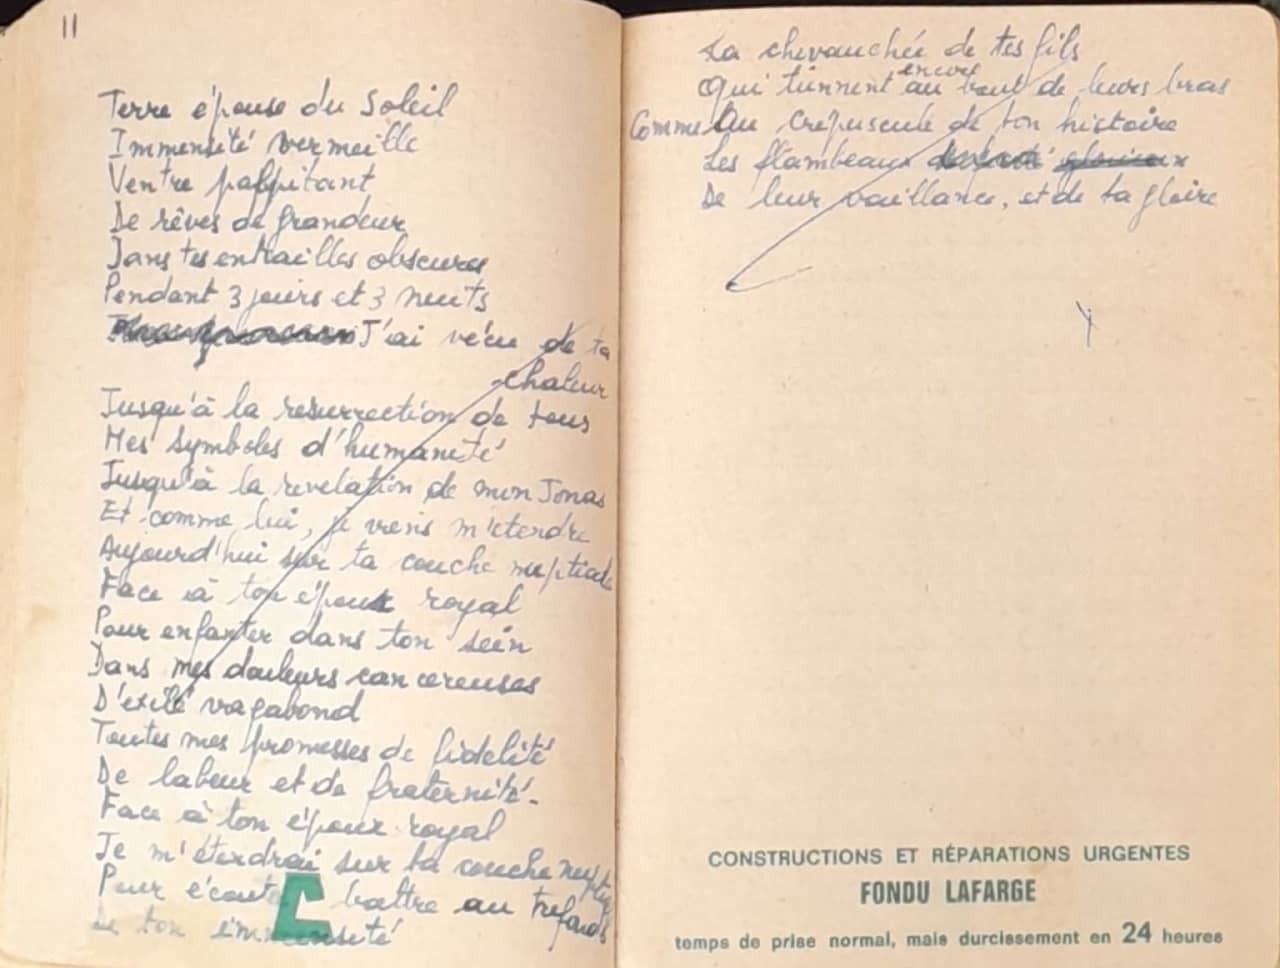 11
Terre épouse du Soleil
Immensité vermeille
Ventre palpitant
De rêves de grandeur
Dans tes entrailles obscures
Pendant 3 jours et 3 nuits
J'ai vécu de ta
chaleur
Jusqu'à la resurrection de tous
Mes symboles d'humanité
Jusqu'à la revelation de mon Jonas
Et comme lui, je viens m'etendre
Aujourd'hui sur ta couche nuptiale
Face à ton époux royal
Pour enfanter dans ton sein
Dans mes douleurs cancereuses
D'exilé vagabond
Toutes mes promesses de fidelité
De labeur et de fraternité.
Face à ton époux royal
Je m'étendrai sur ta couche
Pour écouter battre au tréfonds
De ton immensité
La chevauchée de tes fils
Qui tiennent encore au bout de leurs bras
Comme Au crépuscule de ton histoire
Les flambeaux
De leur vaillance, et de ta gloire
CONSTRUCTIONS ET RÉPARATIONS URGENTES
FONDU LAFARGE
temps de prise normal, mais durcissement en 24 heures